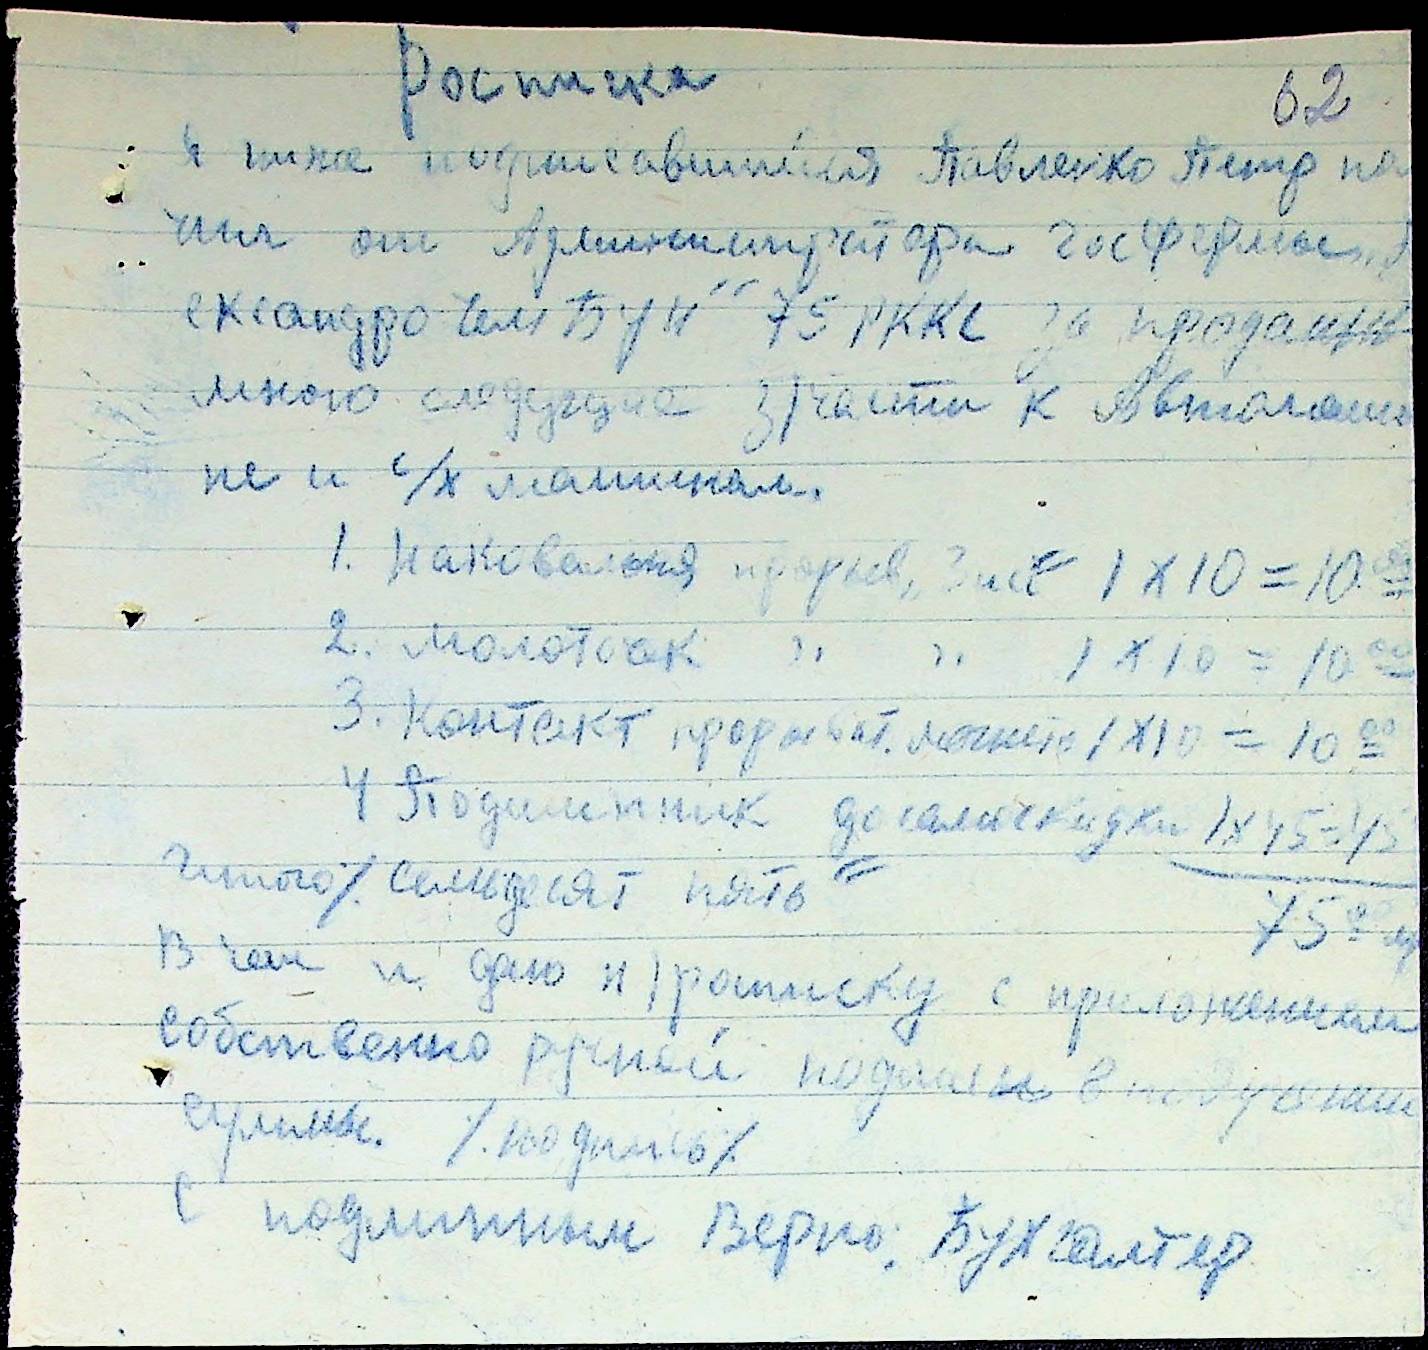 Росписка
62
Я ниже подписавшийся Павленко Петр по
чил от Администратора госфермы „Ал
ександро БУН" 75 РККС за проданн
мною следущие з/части к Автомаши
не и с/х машинам.
1. Наковальня прерыв. Зис 1 х 10 = 10.00
2. Молоточек " " 1 х 10 = 10 00
3. Контект прерыват. магнето 1 х 10 = 10 00
4 Подшипник 1 х 45 = 45
Итого /. семьдесят пять 75 00
В чем и даю н/росписку с приложением
собственно ручной подписи в получении
суммы. /.подпись/
С подлинным Верно: Бухгалтер